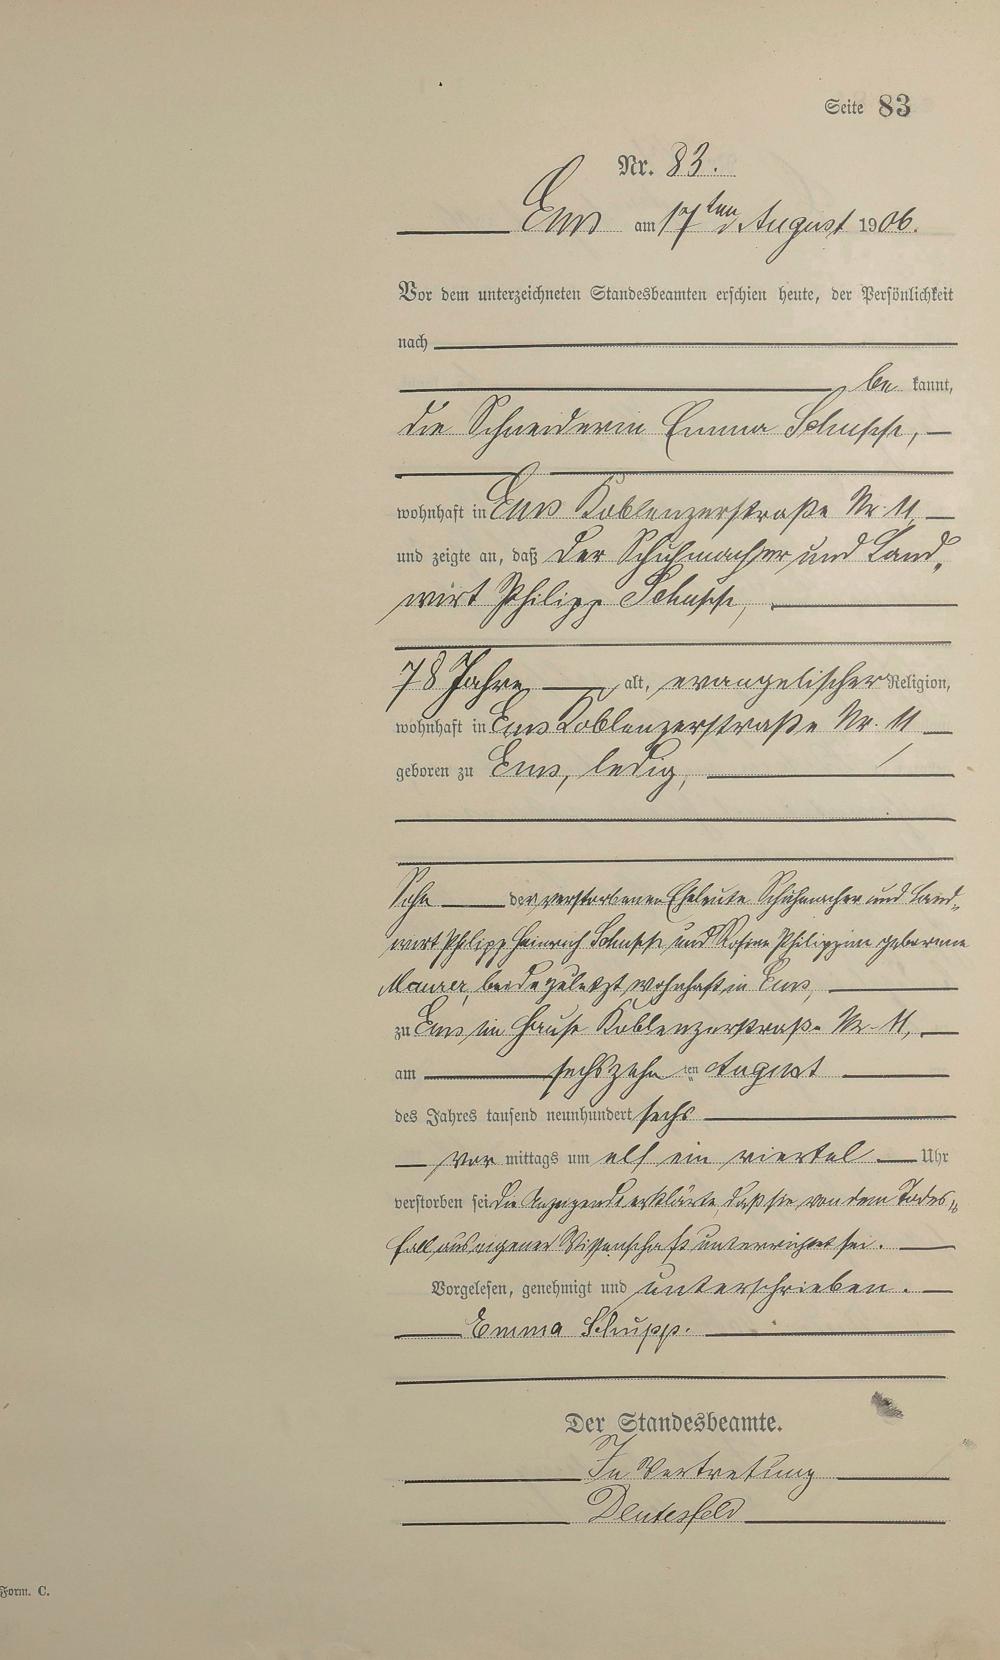 Seite 83
Nr. 83.
Ems am 17ten August 1906.
Vor dem unterzeichneten Standesbeamten erschien heute, der Persönlichkeit
nach
be kannt,
die Schneiderin Emma Schupp,
wohnhaft in Ems Koblenzerstraße Nr. 11
und zeigte an, daß der Schuhmacher und Land„
wirt Philipp Schupp,
78 Jahre alt, evangelischer Religion,
wohnhaft in Ems Koblenzerstraße Nr. 11
geboren zu Ems, ledig,
Sohn der verstorbenen Eheleute Schuhmacher und Land„
wirt Philipp Heinrich Schupp und Rosine Philippine geborene
Maurer, beide zuletzt wohnhaft in Ems,
zu Ems im Hause Koblenzerstraße Nr. 11,
am sechszehn ten August
des Jahres tausend neunhundert sechs
vor mittags um elf ein viertel Uhr
verstorben sei. Die Anzeigende erklärte, daß sie von dem Todes„
fall aus eigener Wissenschaft unterrichtet sei.
Vorgelesen, genehmigt und unterschrieben.
Emma Schupp.
Der Standesbeamte.
In Vertretung
Form. C.